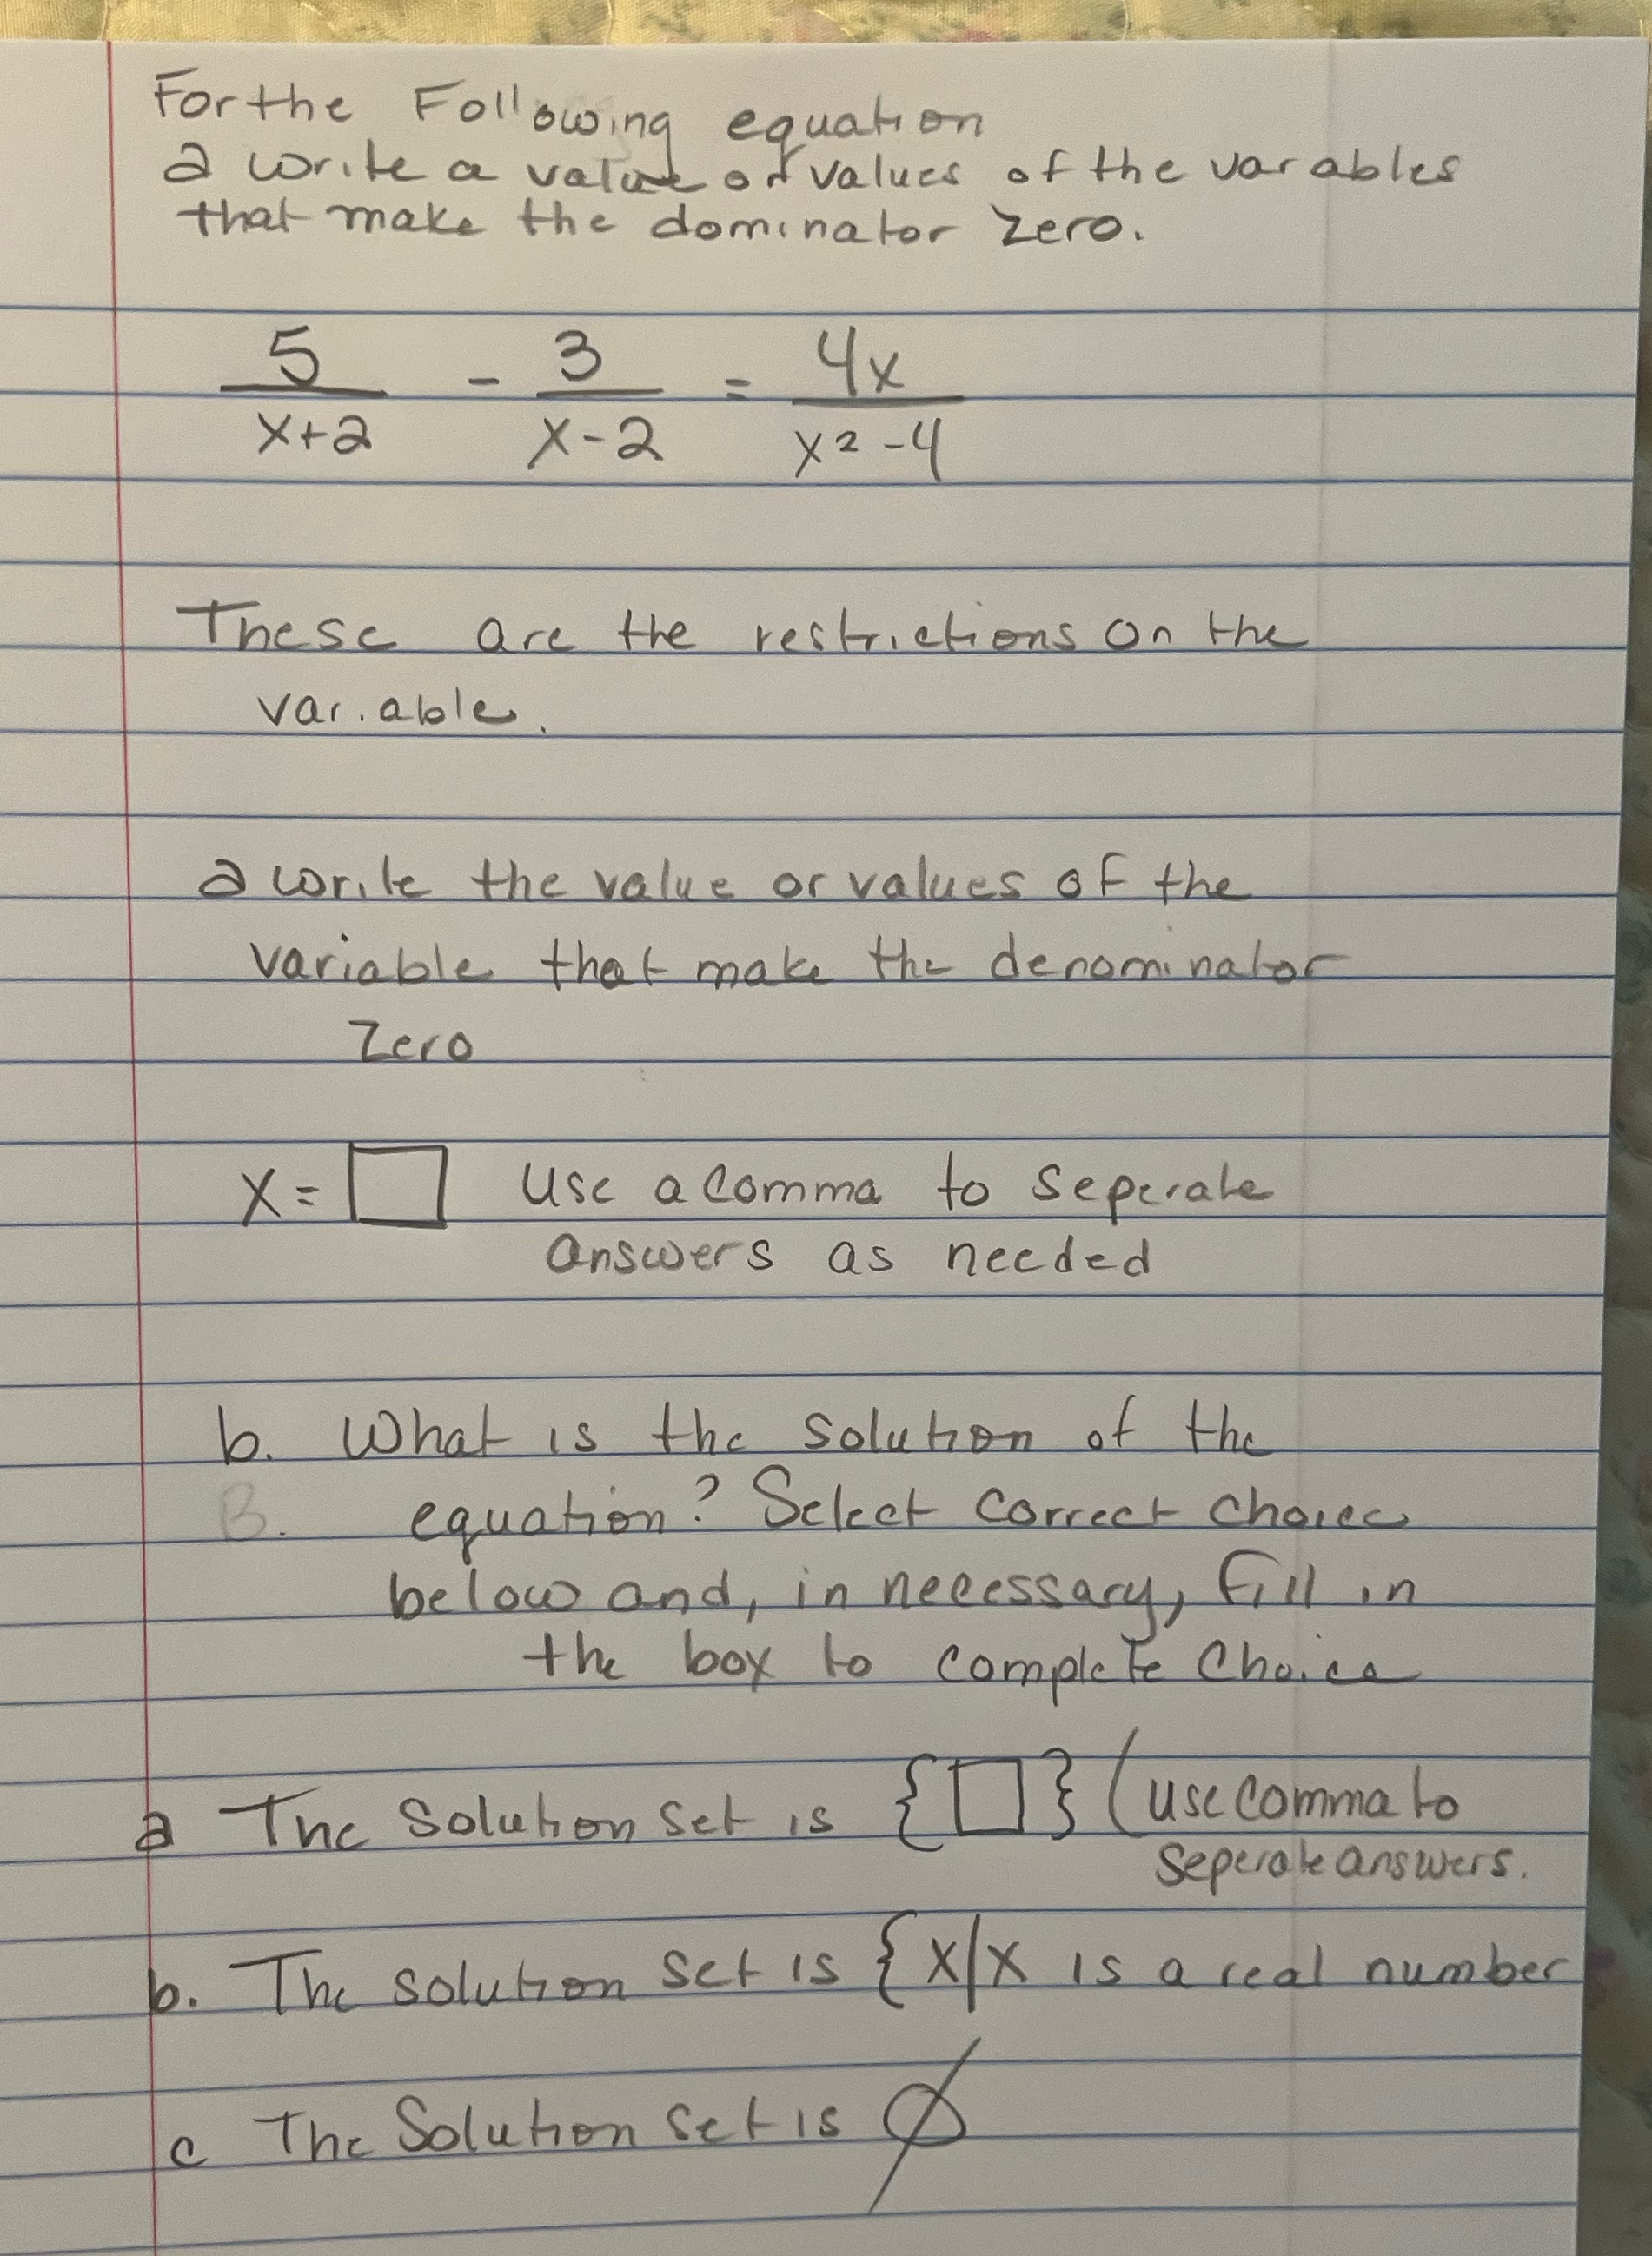 For the Following equation
a write a value or values of the varables
that make the dominator zero.
5/(x+2) - 3/(x-2) = 4x/(x²-4)
These are the restrictions on the
variable.
a write the value or values of the
variable that make the denominator
zero
X = □ Use a comma to seperate
answers as needed
b. What is the solution of the
B. equation? Select correct choice
below and, in necessary, fill in
the box to complete choice
a The solution set is {□} (use comma to
seperate answers.
b. The solution set is {x|x is a real number
c The Solution set is ∅